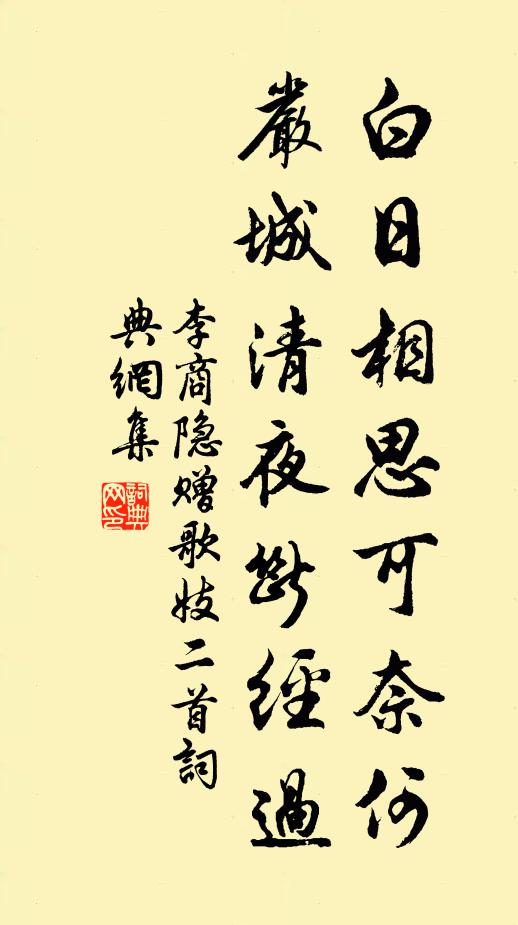 白日相思可奈何
嚴城清夜斷經過
李商隐赠歌妓二首詞
典網集
詞典网印